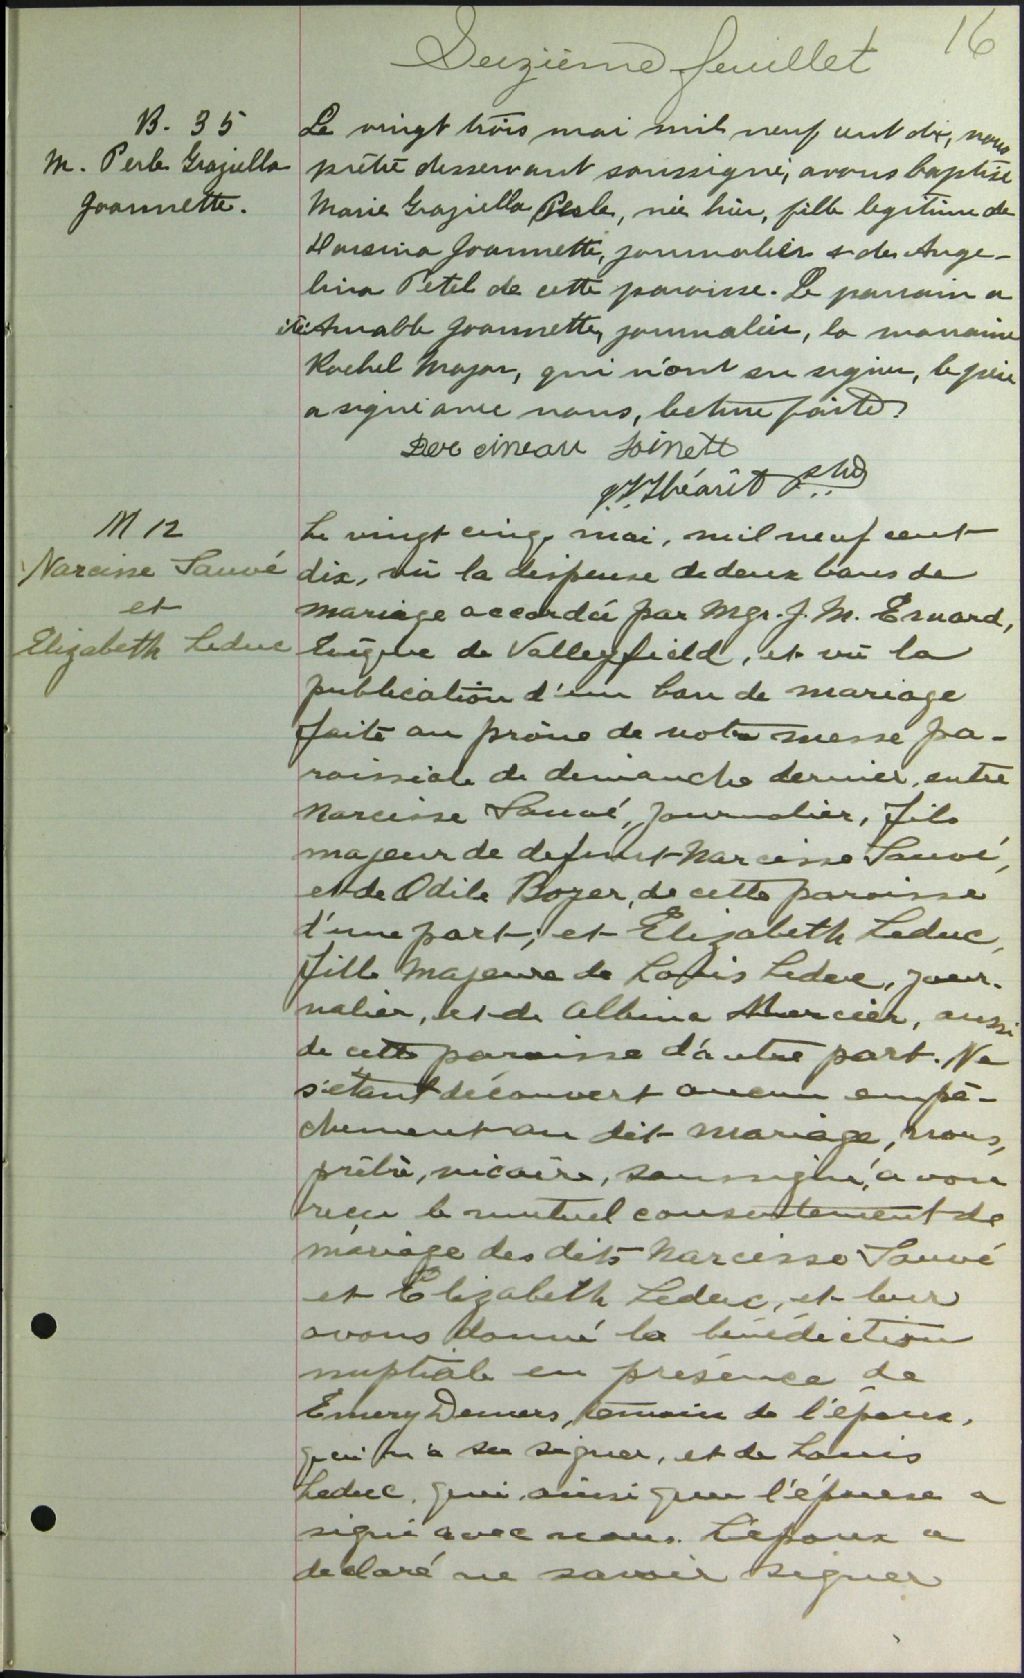 Seizième feuillet 16
B. 35
M. Perle Graziella
Joannette.
Le vingt trois mai mil neuf cent dix, nous
prêtre desservant soussigné, avons baptisé
Marie Graziella Perle, née hier, fille légitime de
Joannette, journalier & de Ange-
lina Petel de cette paroisse. Le parrain a
été Amable Joannette, journalier, la marraine
Rachel Major, qui n'ont su signer, le père
a signé avec nous, lecture faite.
M 12
Narcisse Sauvé
et
Elizabeth Leduc
Le vingt cinq mai, mil neuf cent
dix, vû la dispense de deux bans de
mariage accordée par Mgr. J. M. Emard,
Evêque de Valleyfield, et vû la
publication d'un ban de mariage
faite au prône de notre messe pa-
roissiale de dimanche dernier, entre
Narcisse Sauvé, journalier, fils
majeur de defunt Narcisse Sauvé,
et de Odile Boyer, de cette paroisse
d'une part, et Elizabeth Leduc,
fille majeure de Louis Leduc, jour-
nalier, et de Albina Mercier, aussi
de cette paroisse d'autre part. Ne
s'étant découvert aucun empê-
chement au dit mariage, nous,
prêtre, vicaire, soussigné, avons
reçu le mutuel consentement de
mariage des dits Narcisse Sauvé
et Elizabeth Leduc, et leur
avons donné la bénédiction
nuptiale en présence de
Emery Demers, témoin de l'époux,
qui n'a su signer, et de Louis
Leduc, qui ainsi que l'épouse a
signé avec nous. L'époux a
declaré ne savoir signer